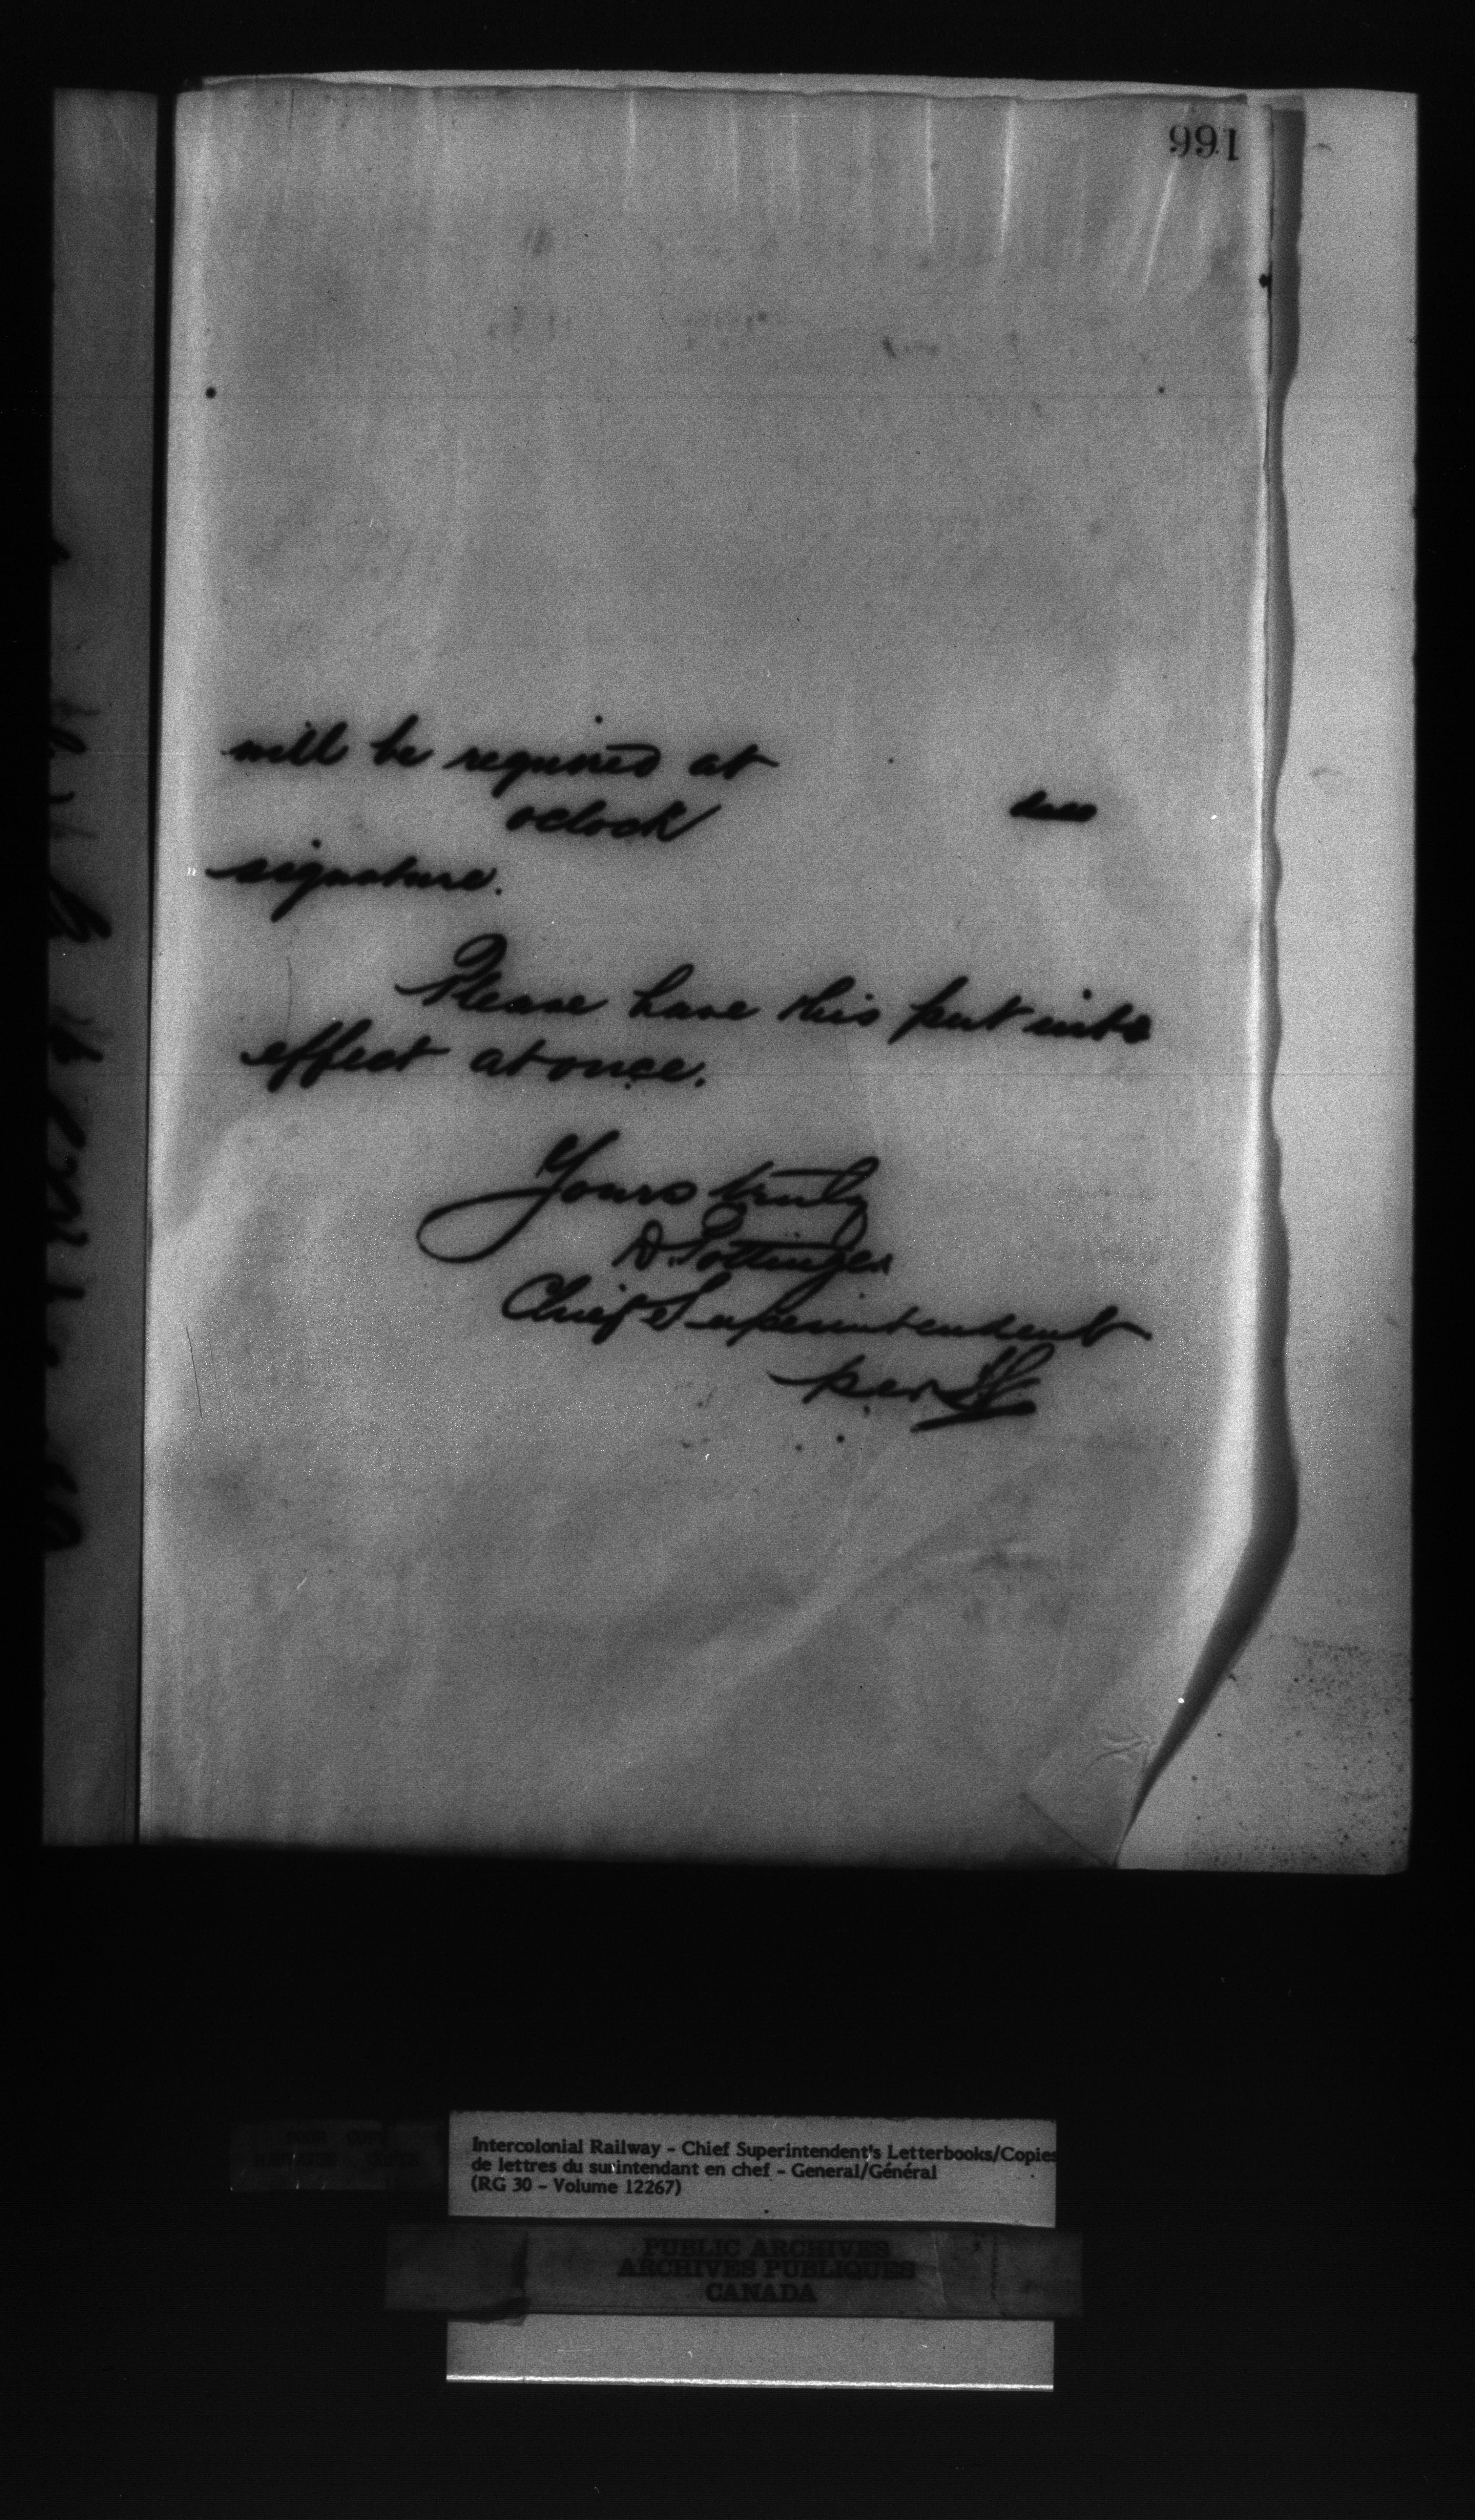 166
will be required at
oclock
signature.
Please have this put into
effect at once.
Yours truly
D. Pottinger
Chief Superintendent
per
Intercolonial Railway - Chief Superintendent's Letterbooks/Copies
de lettres du surintendant en chef - General/Général
(RG 30 - Volume 12267)
PUBLIC ARCHIVES
ARCHIVES PUBLIQUES
CANADA